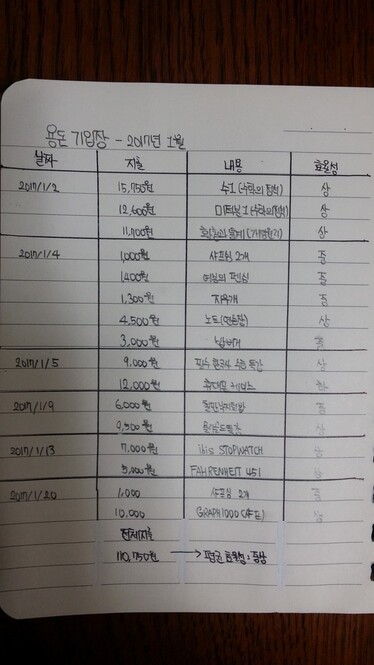 용돈 기입장 - 2017년 1월
날짜 지출 내용 효율성
2017/1/2 15,750원 수1 (수학의 정석) 상
12,600원 미적분 1 (수학의 정석) 상
11,700원 확률과 통계 (개념원리) 상
2017/1/4 1,000원 샤프심 2개 중
1400원 여분의 펜심 중
1,300원 지우개 중
4,500원 노트 (연습장) 상
3,000원
2017/1/5 9,000원 특강 상
12,000원
2017/1/9 6,000원 중
9,500원 상
2017/1/13 7,000원 ibis STOPWATCH 상
5,000원 FAHRENHEIT 451 상
2017/1/20 1,000 샤프심 2개 중
10,000 GRAPH 1000 (샤프) 상
전체지출
110,750원 → 평균 효율성 : 중상